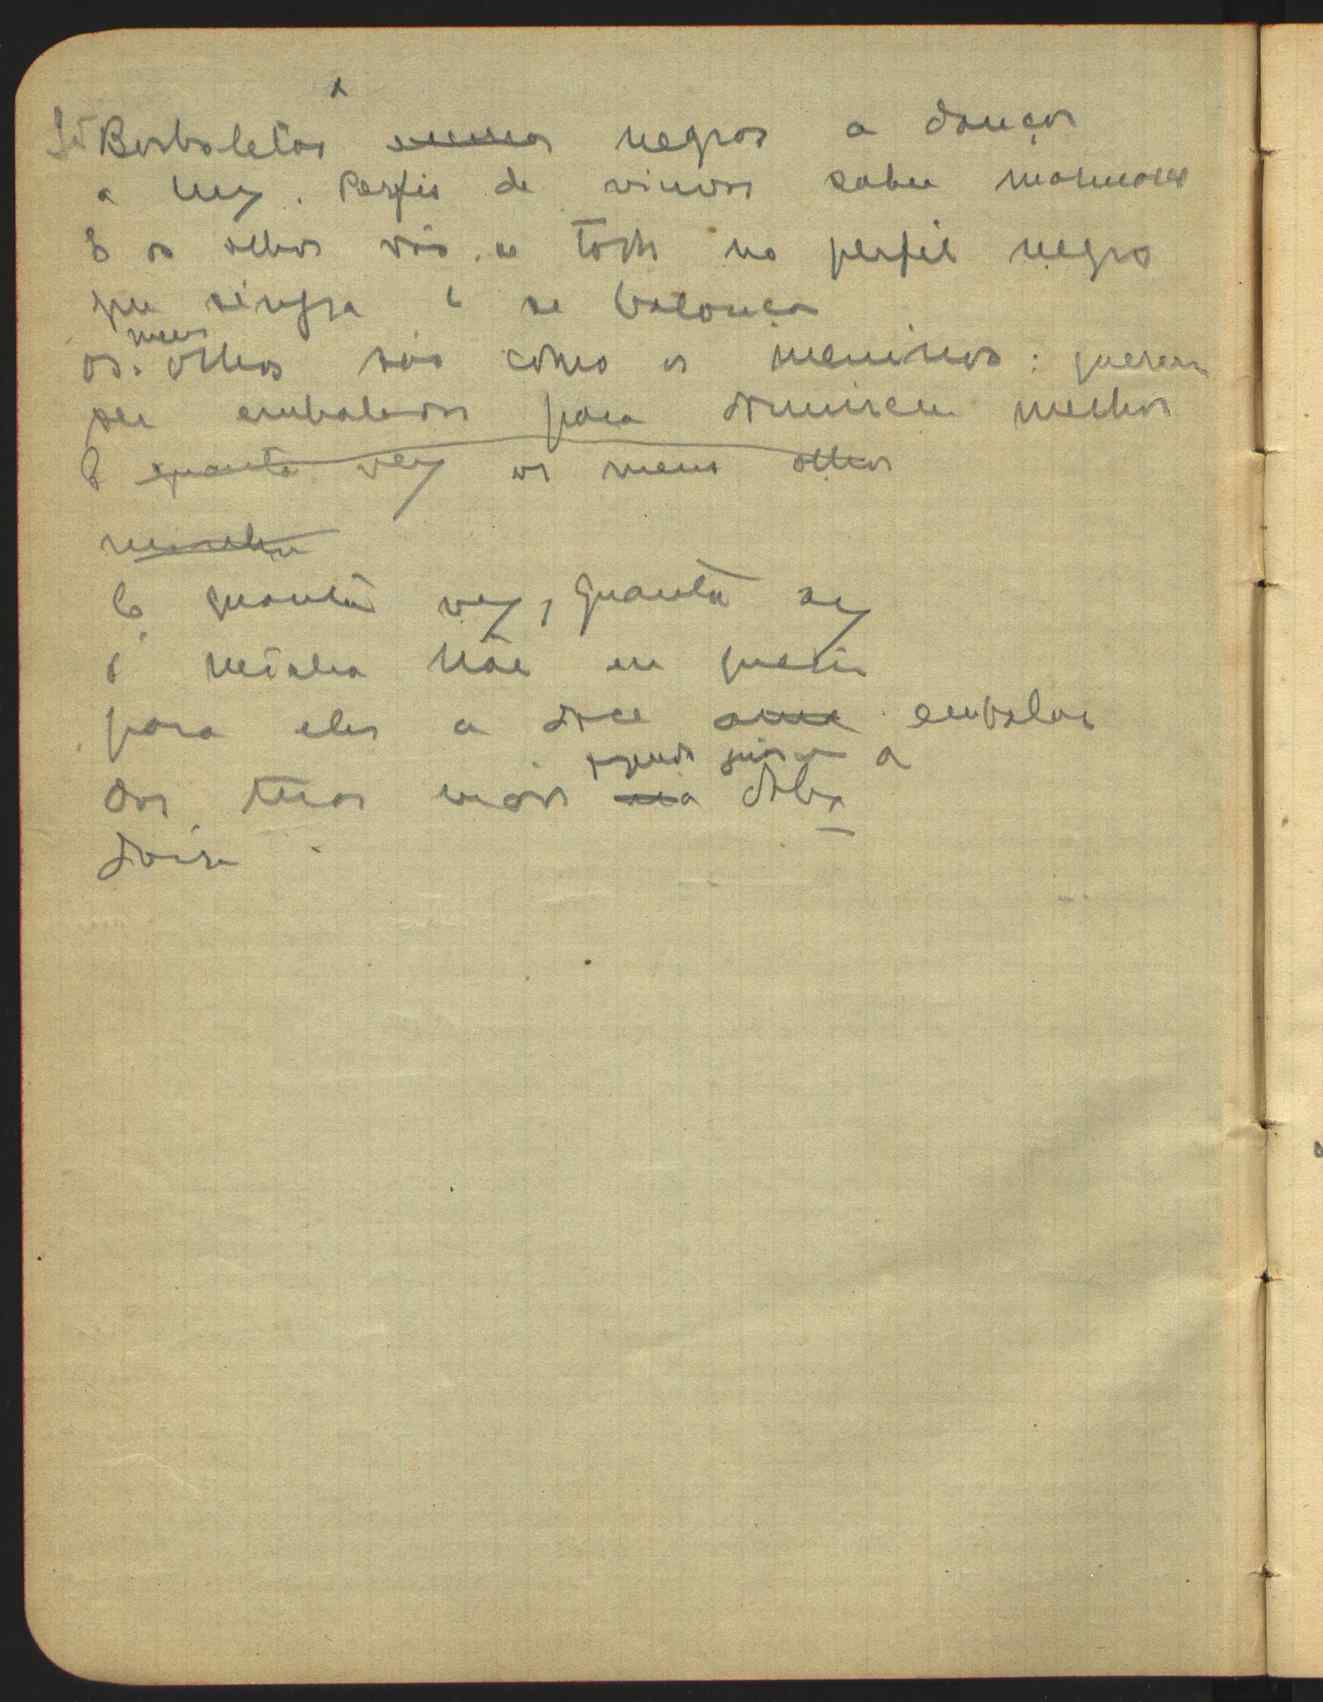 x
Borboletas negras a dançar
a luz. Perfis de viuvas sobre marmores
E os olhos vão. no perfil negro
que singra e se balouça
meus
os olhos são como os meninos: querem
ser embalados para dormirem melhor
E quanta vez os meus olhos
E quanta vez, quanta vez
ó minha Mãe eu queria
para eles a doce embalar
a
das tuas mãos
doira